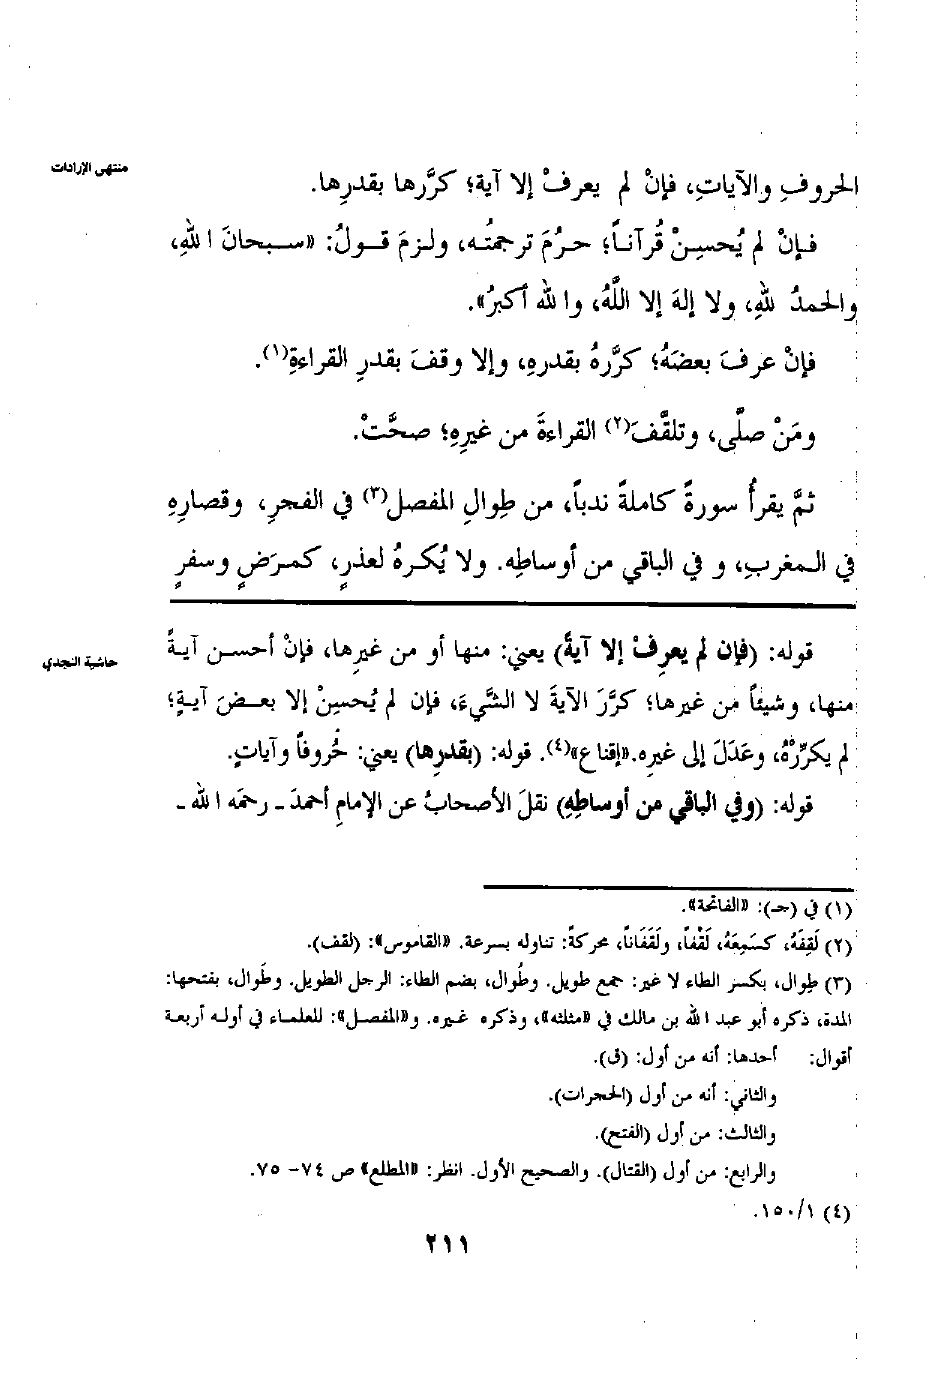 منتهى الإرادات
الحروفِ والآياتِ، فإنْ لم يعرفْ إلا آية؛ كرَّرها بقدرِها.
فإنْ لم يُحسِنْ قُرآناً؛ حرُمَ ترجمتُه، ولزمَ قولُ: «سبحانَ اللهِ،
والحمدُ للهِ، ولا إلهَ إلا اللَّهُ، والله أكبرُ».
فإنْ عرفَ بعضَهُ؛ كرَّرهُ بقدرهِ، وإلا وقفَ بقدرِ القراءةِ(١).
ومَنْ صلَّى، وتلقَّفَ(٢) القراءةَ من غيرِهِ؛ صحَّتْ.
ثمَّ يقرأُ سورةً كاملةً ندباً، من طِوالِ المفصل(٣) في الفجرِ، وقصارِهِ
في المغربِ، و في الباقي من أوساطِه. ولا يُكرهُ لعذرٍ، كمرَضٍ وسفرٍ
حاشية النجدي
قوله: (فإن لم يعرِفْ إلا آيةً) يعني: منها أو من غيرِها، فإنْ أحسن آيةً
منها، وشيئاً من غيرها؛ كرَّرَ الآيةَ لا الشَّيءَ، فإن لم يُحسِنْ إلا بعضَ آيةٍ؛
لم يكرِّرْهُ، وعَدَلَ إلى غيرِه.«إقناع»(٤). قوله: (بقدرِها) يعني: حُروفاً وآياتٍ.
قوله: (وفي الباقي من أوساطِهِ) نقلَ الأصحابُ عن الإمامِ أحمدَ ـ رحمَه الله ـ
(١) في (جـ): «الفاتحة».
(٢) لَقِفَهُ، كسَمِعَهُ، لَقْفاً، ولَقَفَاناً، محركةً: تناوله بسرعة. «القاموس»: (لقف).
(٣) طِوال، بكسر الطاء لا غير: جمع طويل. وطُوال، بضم الطاء: الرجل الطويل. وطَوال، بفتحها:
المدة، ذكره أبو عبد الله بن مالك في «مثلثه»، وذكره غيره. و«المفصل»: للعلماء في أوله أربعة
أقوال: أحدها: أنه من أول: (ق).
والثاني: أنه من أول (الحجرات).
والثالث: من أول (الفتح).
والرابع: من أول (القتال). والصحيح الأول. انظر: «المطلع» ص ٧٤- ٧٥.
(٤) ١/‏١٥٠.
٢١١